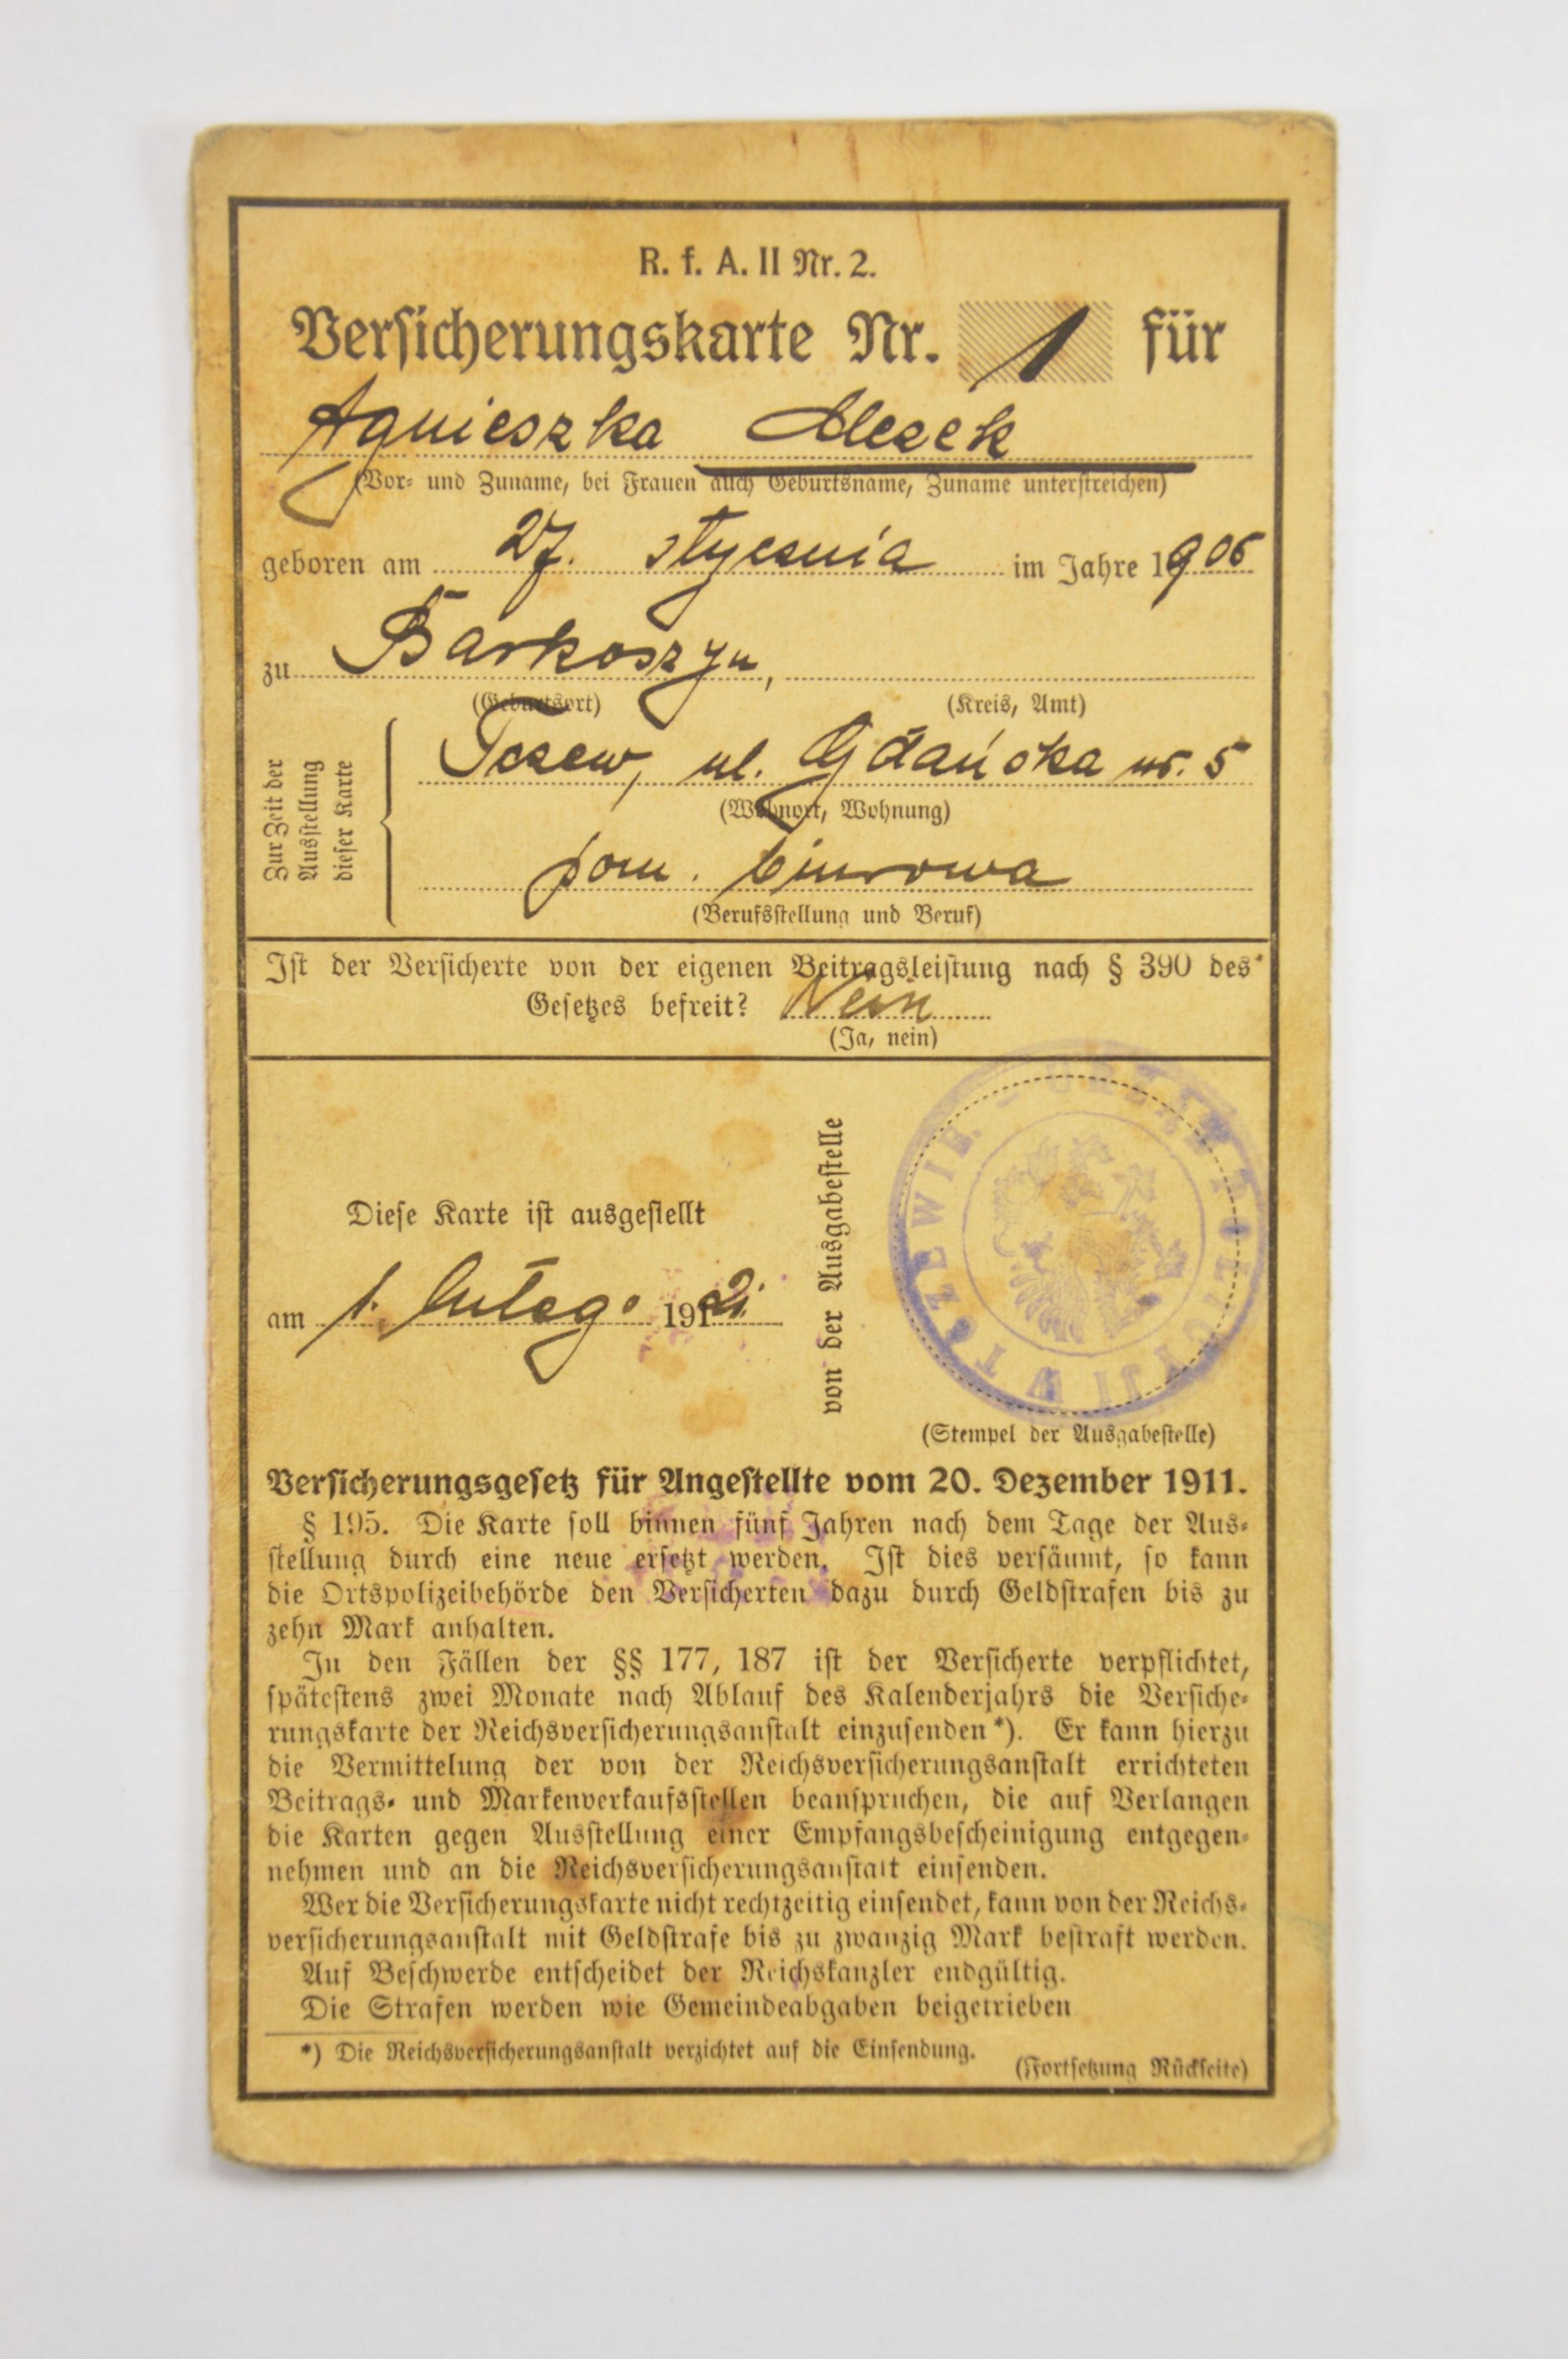 R. f. A. II Nr. 2.
Versicherungskarte Nr. 1 für
Agnieszka
(Vor- und Zuname, bei Frauen auch Geburtsname, Zuname unterstreichen)
geboren am 27. stycznia im Jahre 1906
zu Barkoszyn,
(Geburtsort) (Kreis, Amt)
Zur Zeit der
Ausstellung
dieser Karte
Tczew, ul. Gdańska nr. 5
(Wohnort, Wohnung)
pom. biurowa
(Berufsstellung und Beruf)
Ist der Versicherte von der eigenen Beitragsleistung nach § 390 des
Gesetzes befreit? Nein
(Ja, nein)
Diese Karte ist ausgestellt
am 1. lutego 192
von der Ausgabestelle
URZĄD POLICJI W TCZEWIE
(Stempel der Ausgabestelle)
Versicherungsgesetz für Angestellte vom 20. Dezember 1911.
§ 195. Die Karte soll binnen fünf Jahren nach dem Tage der Aus-
stellung durch eine neue ersetzt werden. Ist dies versäumt, so kann
die Ortspolizeibehörde den Versicherten dazu durch Geldstrafen bis zu
zehn Mark anhalten.
In den Fällen der §§ 177, 187 ist der Versicherte verpflichtet,
spätestens zwei Monate nach Ablauf des Kalenderjahrs die Versiche-
rungskarte der Reichsversicherungsanstalt einzusenden*). Er kann hierzu
die Vermittelung der von der Reichsversicherungsanstalt errichteten
Beitrags- und Markenverkaufsstellen beanspruchen, die auf Verlangen
die Karten gegen Ausstellung einer Empfangsbescheinigung entgegen-
nehmen und an die Reichsversicherungsanstalt einsenden.
Wer die Versicherungskarte nicht rechtzeitig einsendet, kann von der Reichs-
versicherungsanstalt mit Geldstrafe bis zu zwanzig Mark bestraft werden.
Auf Beschwerde entscheidet der Reichskanzler endgültig.
Die Strafen werden wie Gemeindeabgaben beigetrieben
*) Die Reichsversicherungsanstalt verzichtet auf die Einsendung.
(Fortsetzung Rückseite)